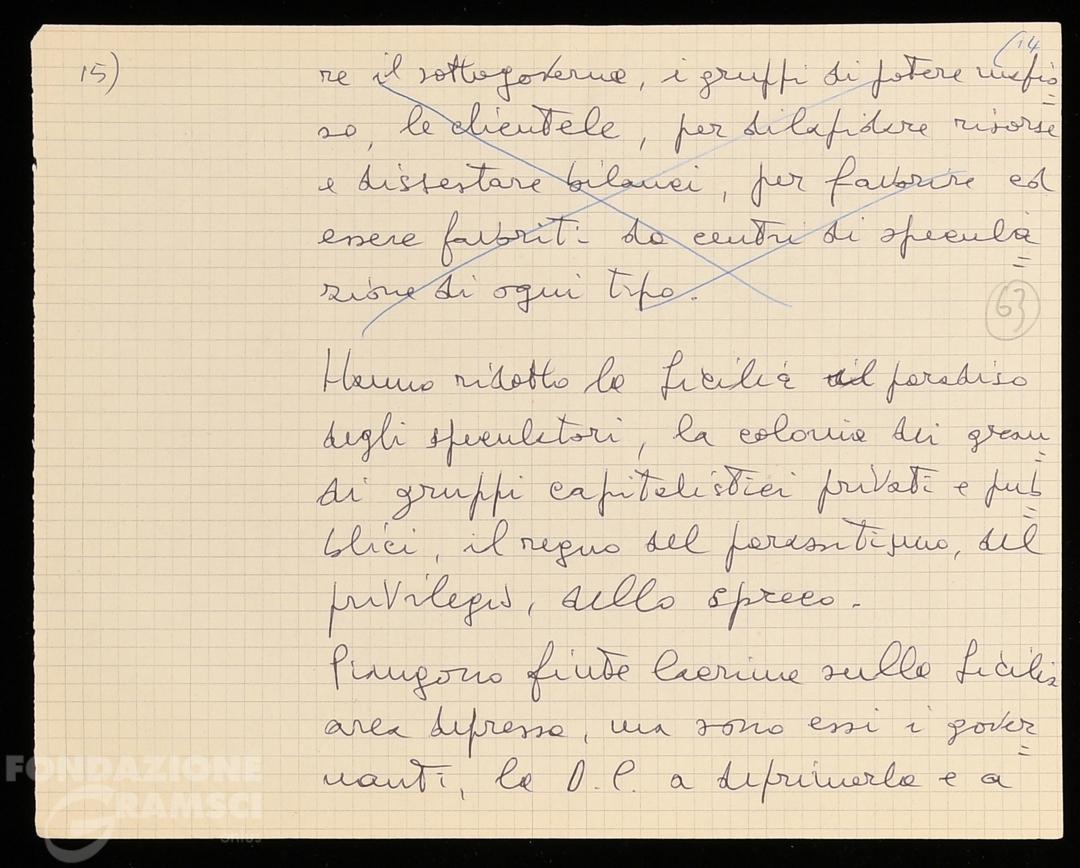 14
15)
re il sottogoverno, i gruppi di potere mafio=
so, le clientele, per dilapidare risorse
e dissestare bilanci, per favorire ed
essere favoriti da centri di specula=
zione di ogni tipo.
63
Hanno ridotto la Sicilia il paradiso
degli speculatori, la colonia dei gran=
di gruppi capitalistici privati e pub=
blici, il regno del parassitismo, del
privilegio, dello spreco.
Piangono finte lacrime sulla Sicilia
area depressa, ma sono essi i gover=
nanti, la D.C. a deprimerla e a
FONDAZIONE
GRAMSCI
ONLUS